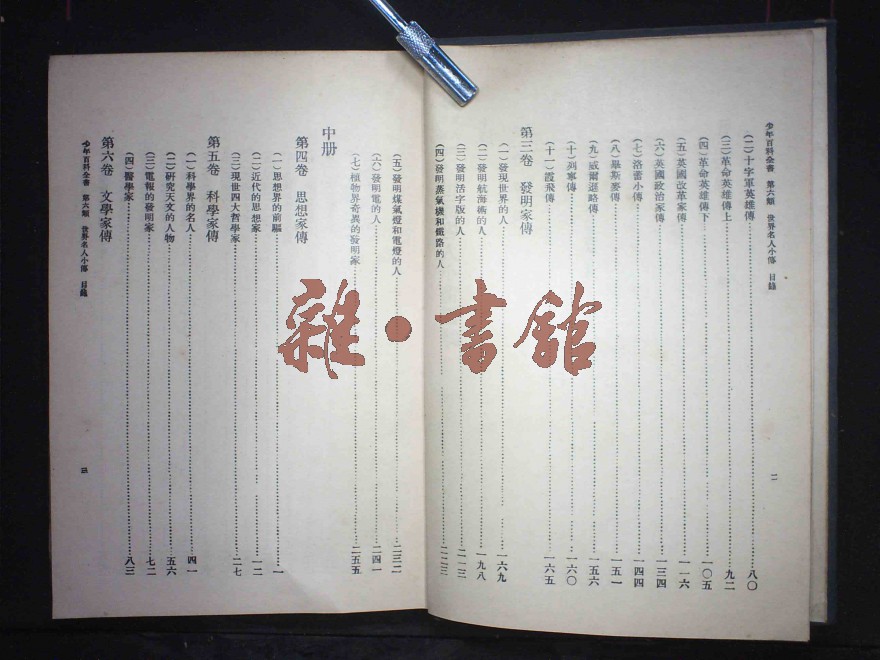 少年百科全書 第六類 世界名人小傳 目錄
(二)十字軍英雄傳 八〇
(三)革命英雄傳上 九二
(四)革命英雄傳下 一〇五
(五)英國改革家傳 一一六
(六)英國政治家傳 一三四
(七)洛蕾小傳 一四四
(八)畢斯麥傳 一五一
(九)威爾遜略傳 一五六
(十)列寧傳 一六〇
(十一)霞飛傳 一六五
第三卷 發明家傳
(一)發現世界的人 一六九
(二)發明航海術的人 一九八
(三)發明活字版的人 二一三
(四)發明蒸氣機和鐵路的人 二二三
二
(五)發明煤氣燈和電燈的人 二三二
(六)發明電的人 二四一
(七)植物界奇異的發明家 二五五
中册
第四卷 思想家傳
(一)思想界的前驅 一
(二)近代的思想家 一二
(三)現世四大哲學家 二七
第五卷 科學家傳
(一)科學界的名人 四一
(二)研究天文的人物 五六
(三)電報的發明家 七二
(四)醫學家 八三
第六卷 文學家傳
少年百科全書 第六類 世界名人小傳 目錄
三
雜·書館